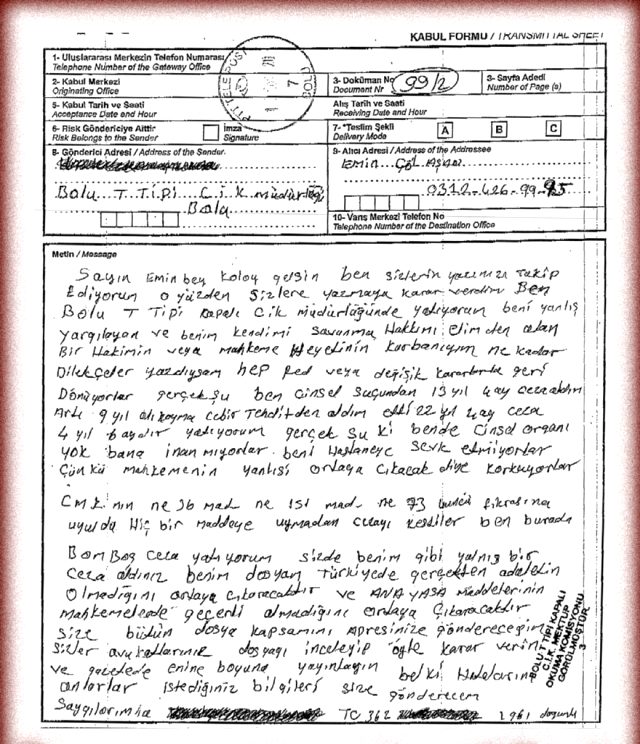 KABUL FORMU / TRANSMITTAL SHEET
1- Uluslararası Merkezin Telefon Numarası
Telephone Number of the Gateway Office
2- Kabul Merkezi
Originating Office
3- Doküman No
Document Nr
99/2
3- Sayfa Adedi
Number of Page (s)
5- Kabul Tarih ve Saati
Acceptance Date and Hour
Alış Tarih ve Saati
Receiving Date and Hour
6- Risk Göndericiye Aittir
Risk Belongs to the Sender
İmza
Signature
7- *Teslim Şekli
Delivery Mode
A B C
8- Gönderici Adresi / Address of the Sender
Bolu T Tipi C i k müdürlüğü
Bolu
9- Alıcı Adresi / Address of the Addressee
Emin Çölaşan
0312-426-99-95
10- Varış Merkezi Telefon No
Telephone Number of the Destination Office
PTT TELEPOST
BOLU
Metin / Message
Sayın Emin bey kolay gelsin ben sizlerin yazınızı takip
Ediyorum o yüzden sizlere yazmaya karar verdim Ben
Bolu T Tipi kapalı Cik müdürlüğünde yatıyorum beni yanlış
yargılayan ve benim kendimi savunma Hakkımı elimden alan
Bir Hakimin veya mahkeme Heyetinin kurbanıyım ne kadar
Dilekçeler yazdıysam hep Red veya değişik kararlarla geri
Dönüyorlar gerçek şu ben cinsel suçundan 13 yıl 4 ay ceza aldım
Artı 9 yıl alıkoyma cebir Tehditden aldım etti 22 yıl 4 ay ceza
4 yıl baydır yatıyorum gerçek şu ki bende Cinsel organı
yok bana inanmıyorlar beni Hastaneye sevk etmiyorlar
Çünkü mahkemenin yanlışı ortaya çıkacak diye korkuyorlar
CMK'nın ne 36 mad ne 151 mad ne 73 üncü fıkrasına
uyuldu Hiç bir maddeye uymadan cezayı kestiler ben burada
Bomboş ceza yatıyorum sizde benim gibi yalnış bir
Ceza aldınız benim dosyam Türkiyede gerçekten adaletin
Olmadığını ortaya çıkaracaktır ve ANAYASA maddelerinin
mahkemelerde geçerli olmadığını ortaya çıkaracaktır
size bütün dosya kapsamını Apresinize göndereceğim
sizler avukatlarınız dosyayı inceleyip öyle karar verin
ve gazetede enine boyuna yayınlayın belki Hatalarını
anlarlar istediğiniz bilgileri size gönderecem
Saygılarımla TC 362 1961 doğumlu
BOLU T TİPİ KAPALI
C.İ.K. MEKTUP
OKUMA KOMİSYONU
GÖRÜLMÜŞTÜR
3